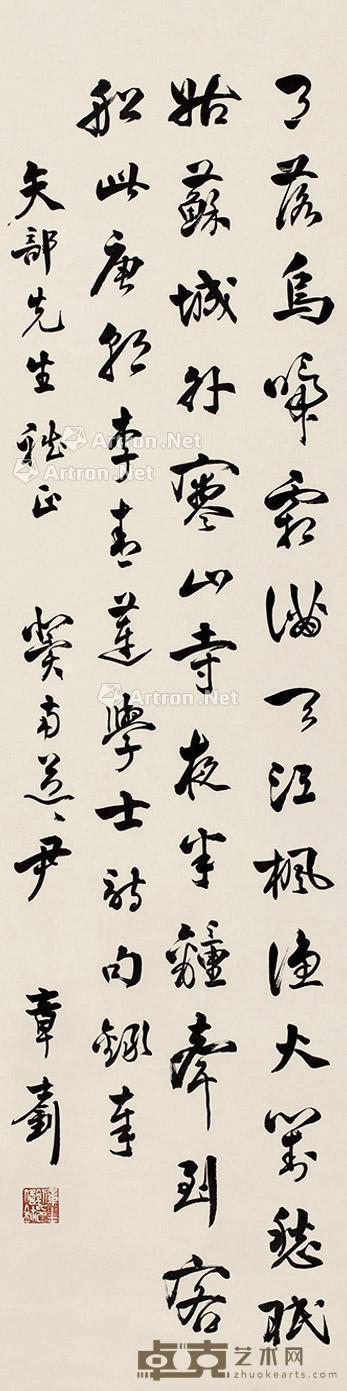 月落烏啼霜滿天江楓漁火對愁眠
姑蘇城外寒山寺夜半鐘聲到客
船此唐朝李青蓮學士詩句錄奉
矢部先生雅正 冀南道尹 章
Artron.Net
Artron.Net
Artron.Net
Artron.Net
卓克艺术网
www.zhuokearts.com